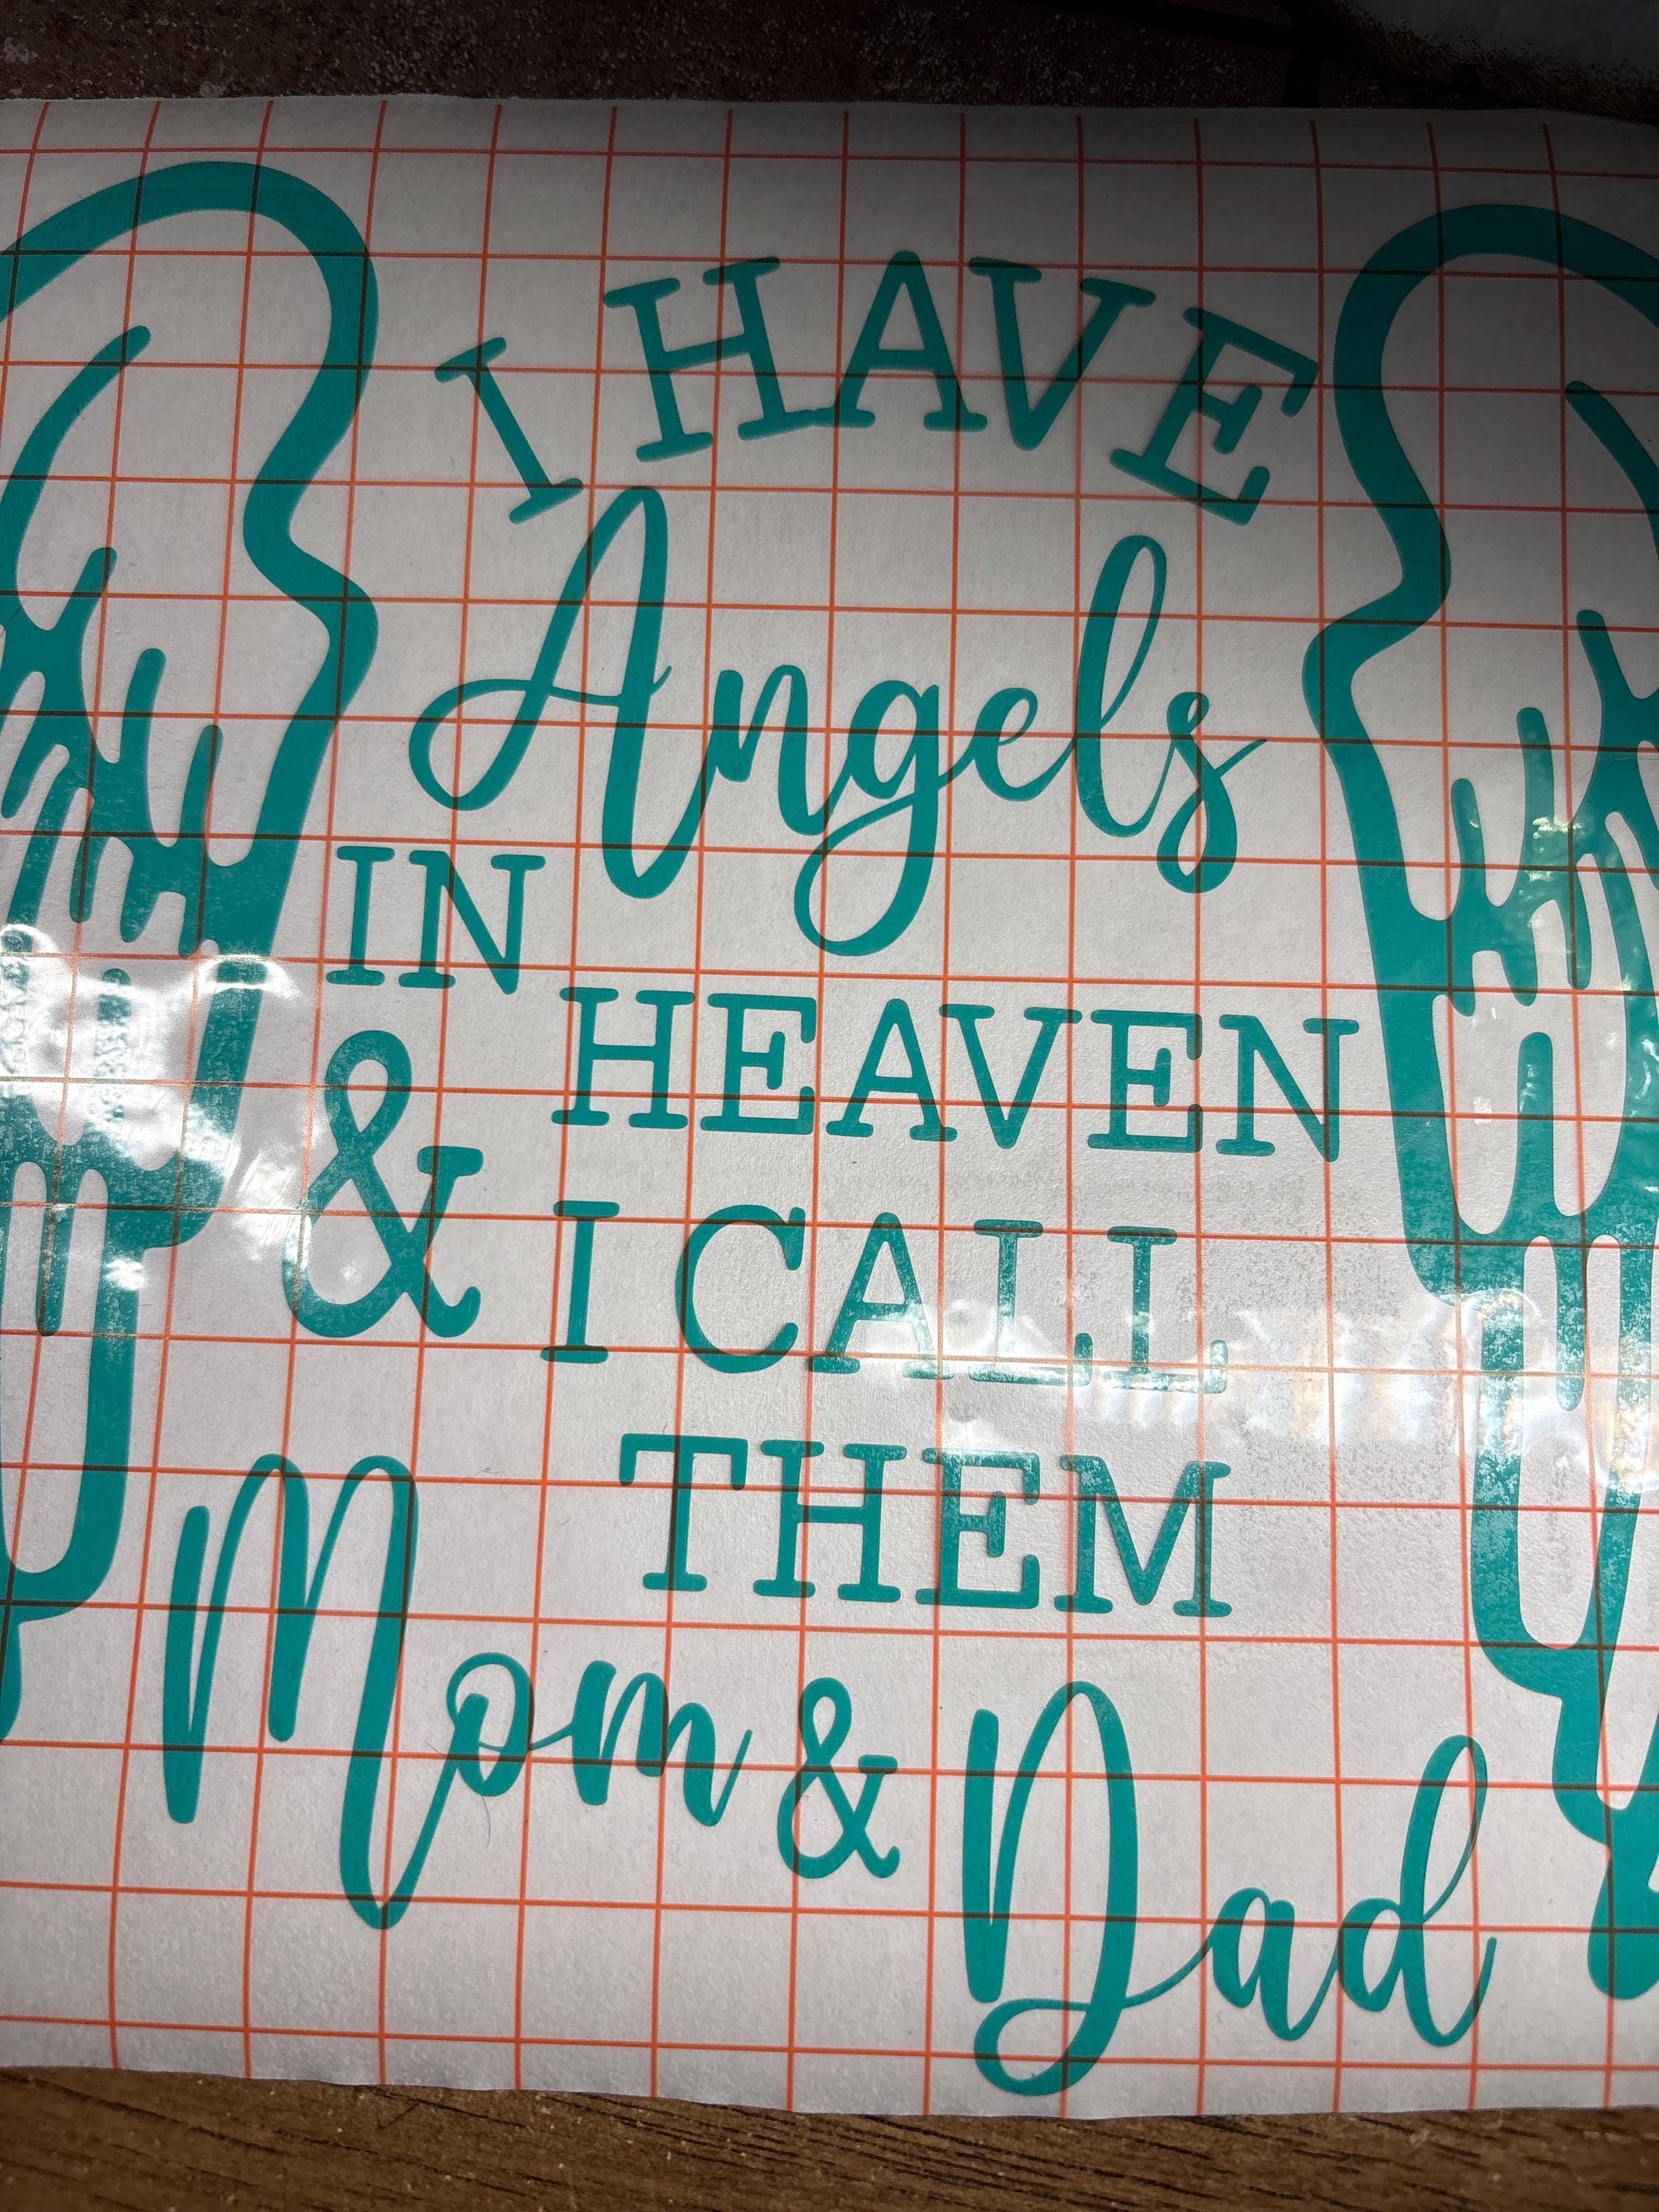 I HAVE
Angels
IN
HEAVEN
& I CALL
THEM
Mom & Dad